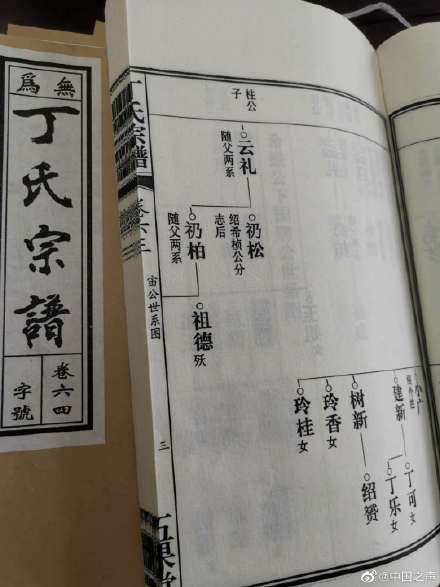 無爲
丁氏宗譜
卷六四
字號
丁氏宗譜
卷六三
宙公世系图
三
柱公
子
云礼
随父两系
礽松
绍希桢公分
志后
礽柏
随父两系
祖德
殁
建新
丁可
女
丁乐
女
树新
绍赟
玲香
女
玲桂
女